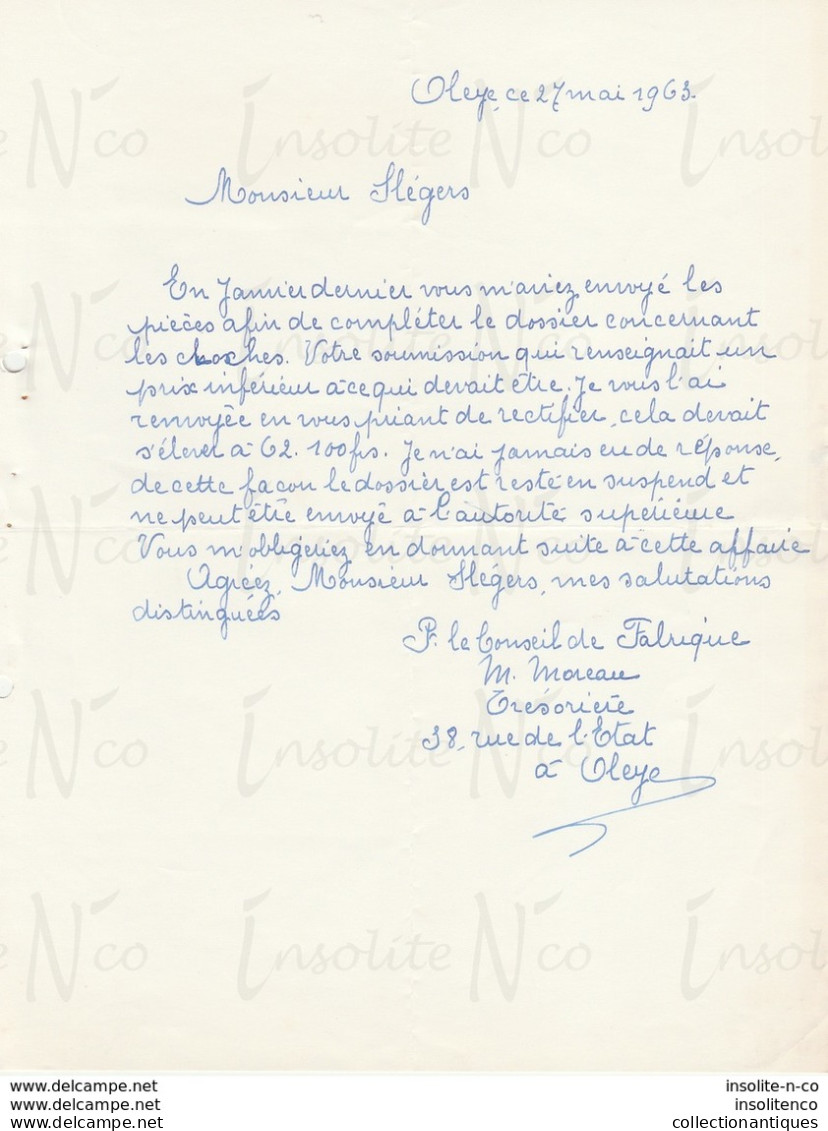 Oleye, ce 27 mai 1963.
Monsieur Slégers
En Janvier dernier vous m'aviez envoyé les
pièces afin de compléter le dossier concernant
les cloches. Votre soumission qui renseignait un
prix inférieur à ce qui devait être. Je vous l'ai
renvoyée en vous priant de rectifier, cela devait
s'élever à 62.100 frs. Je n'ai jamais eu de réponse,
de cette façon le dossier est resté en suspend et
ne peut être envoyé à l'autorité supérieure
Vous m'obligeriez en donnant suite à cette affaire
Agréez, Monsieur Slégers, mes salutations
distinguées
P. le Conseil de Fabrique
M. Moreau
Trésorière
38, rue de l'Etat
à Oleye
Insolite N'co
www.delcampe.net
www.delcampe.com
www.delcampe.eu
insolite-n-co
insolitenco
collectionantiques